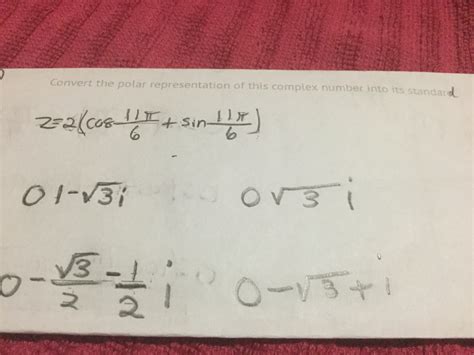 Convert the polar representation of this complex number into its standard
z=2(cos 11π/6 + sin 11π/6)
O 1-√3i
O √3 i
O -√3/2 - 1/2 i
O -√3 + i